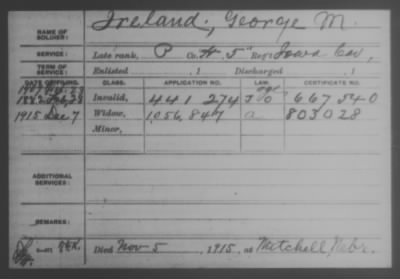 NAME OF SOLDIER: Ireland, George M.
SERVICE: Late rank, P Co. H, 5" Reg't Iowa Cav,
TERM OF SERVICE: Enlisted , 1 Discharged , 1
DATE OF FILING. CLASS. APPLICATION NO. LAW. CERTIFICATE NO.
1882 Feb, 28 Invalid, 441 274 667 540
1915 Dec 7 Widow, 1,056,847 a 803028
Minor,
ADDITIONAL SERVICES:
REMARKS:
Died Nov 5, 1915, at Mitchell, Nebr.